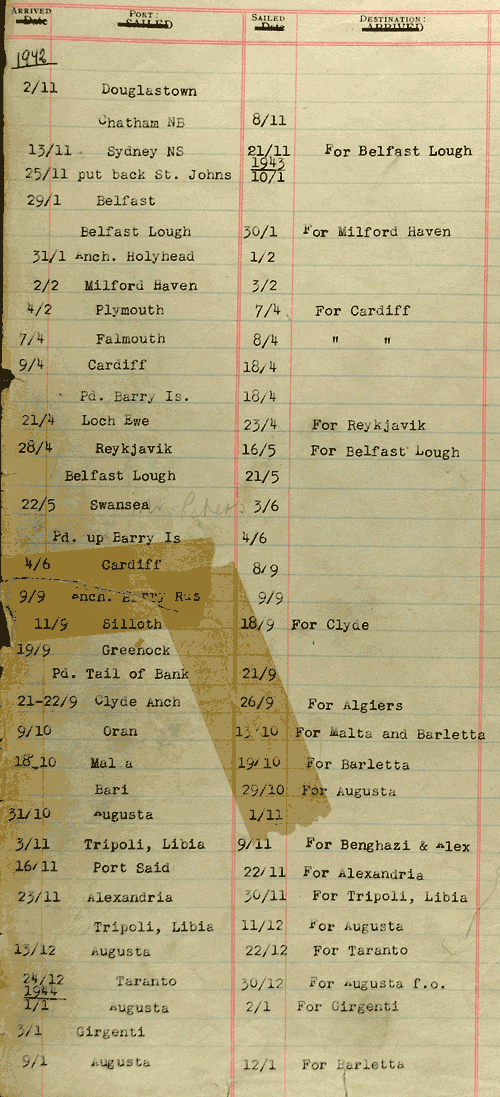 ARRIVED PORT: SAILED DESTINATION:
Date SAILED Date ARRIVED
1942
2/11 Douglastown
Chatham NB 8/11
13/11 Sydney NS 21/11 For Belfast Lough
1943
25/11 put back St. Johns 10/1
29/1 Belfast
Belfast Lough 30/1 For Milford Haven
31/1 Anch. Holyhead 1/2
2/2 Milford Haven 3/2
4/2 Plymouth 7/4 For Cardiff
7/4 Falmouth 8/4 " "
9/4 Cardiff 18/4
Pd. Barry Is. 18/4
21/4 Loch Ewe 23/4 For Reykjavik
28/4 Reykjavik 16/5 For Belfast Lough
Belfast Lough 21/5
22/5 Swansea 3/6
Pd. up Barry Is 4/6
4/6 Cardiff 8/9
9/9 Anch. Barry Rds 9/9
11/9 Silloth 18/9 For Clyde
19/9 Greenock
Pd. Tail of Bank 21/9
21-22/9 Clyde Anch 26/9 For Algiers
9/10 Oran 13/10 For Malta and Barletta
18/10 Malta 19/10 For Barletta
Bari 29/10 For Augusta
31/10 Augusta 1/11
3/11 Tripoli, Libia 9/11 For Benghazi & Alex
16/11 Port Said 22/11 For Alexandria
23/11 Alexandria 30/11 For Tripoli, Libia
Tripoli, Libia 11/12 For Augusta
13/12 Augusta 22/12 For Taranto
24/12 Taranto 30/12 For Augusta f.o.
1944
1/1 Augusta 2/1 For Girgenti
3/1 Girgenti
9/1 Augusta 12/1 For Barletta